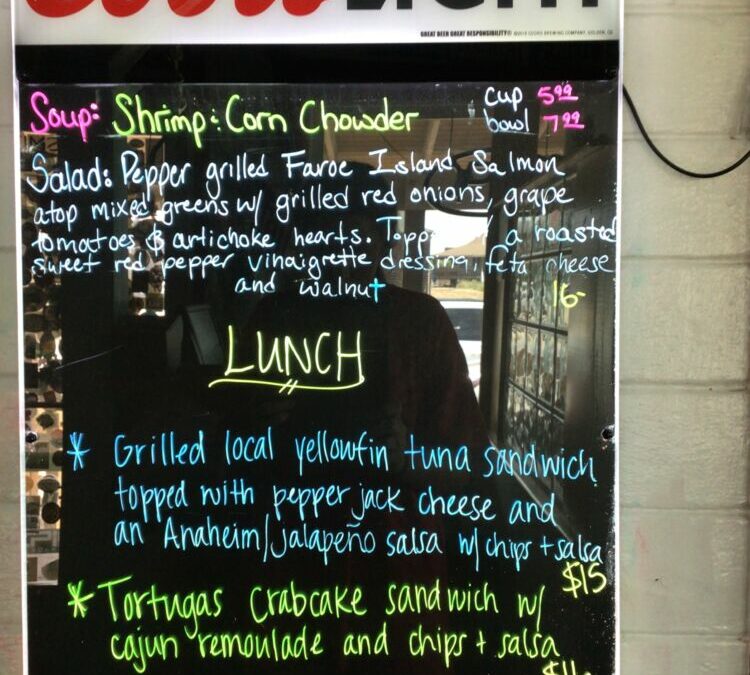 Coors LIGHT
GREAT BEER GREAT RESPONSIBILITY® ©2019 COORS BREWING COMPANY, GOLDEN, CO
Soup: Shrimp & Corn Chowder cup 5.99
bowl 7.99
Salad: Pepper grilled Faroe Island Salmon
atop mixed greens w/ grilled red onions, grape
tomatoes & artichoke hearts. a roasted
sweet red pepper vinaigrette dressing, feta cheese
and walnut
16-
LUNCH
* Grilled local yellowfin tuna sandwich
topped with pepper jack cheese and
an Anaheim/Jalapeño salsa w/ chips + salsa
$15
* Tortugas crabcake sandwich w/
cajun remoulade and chips + salsa